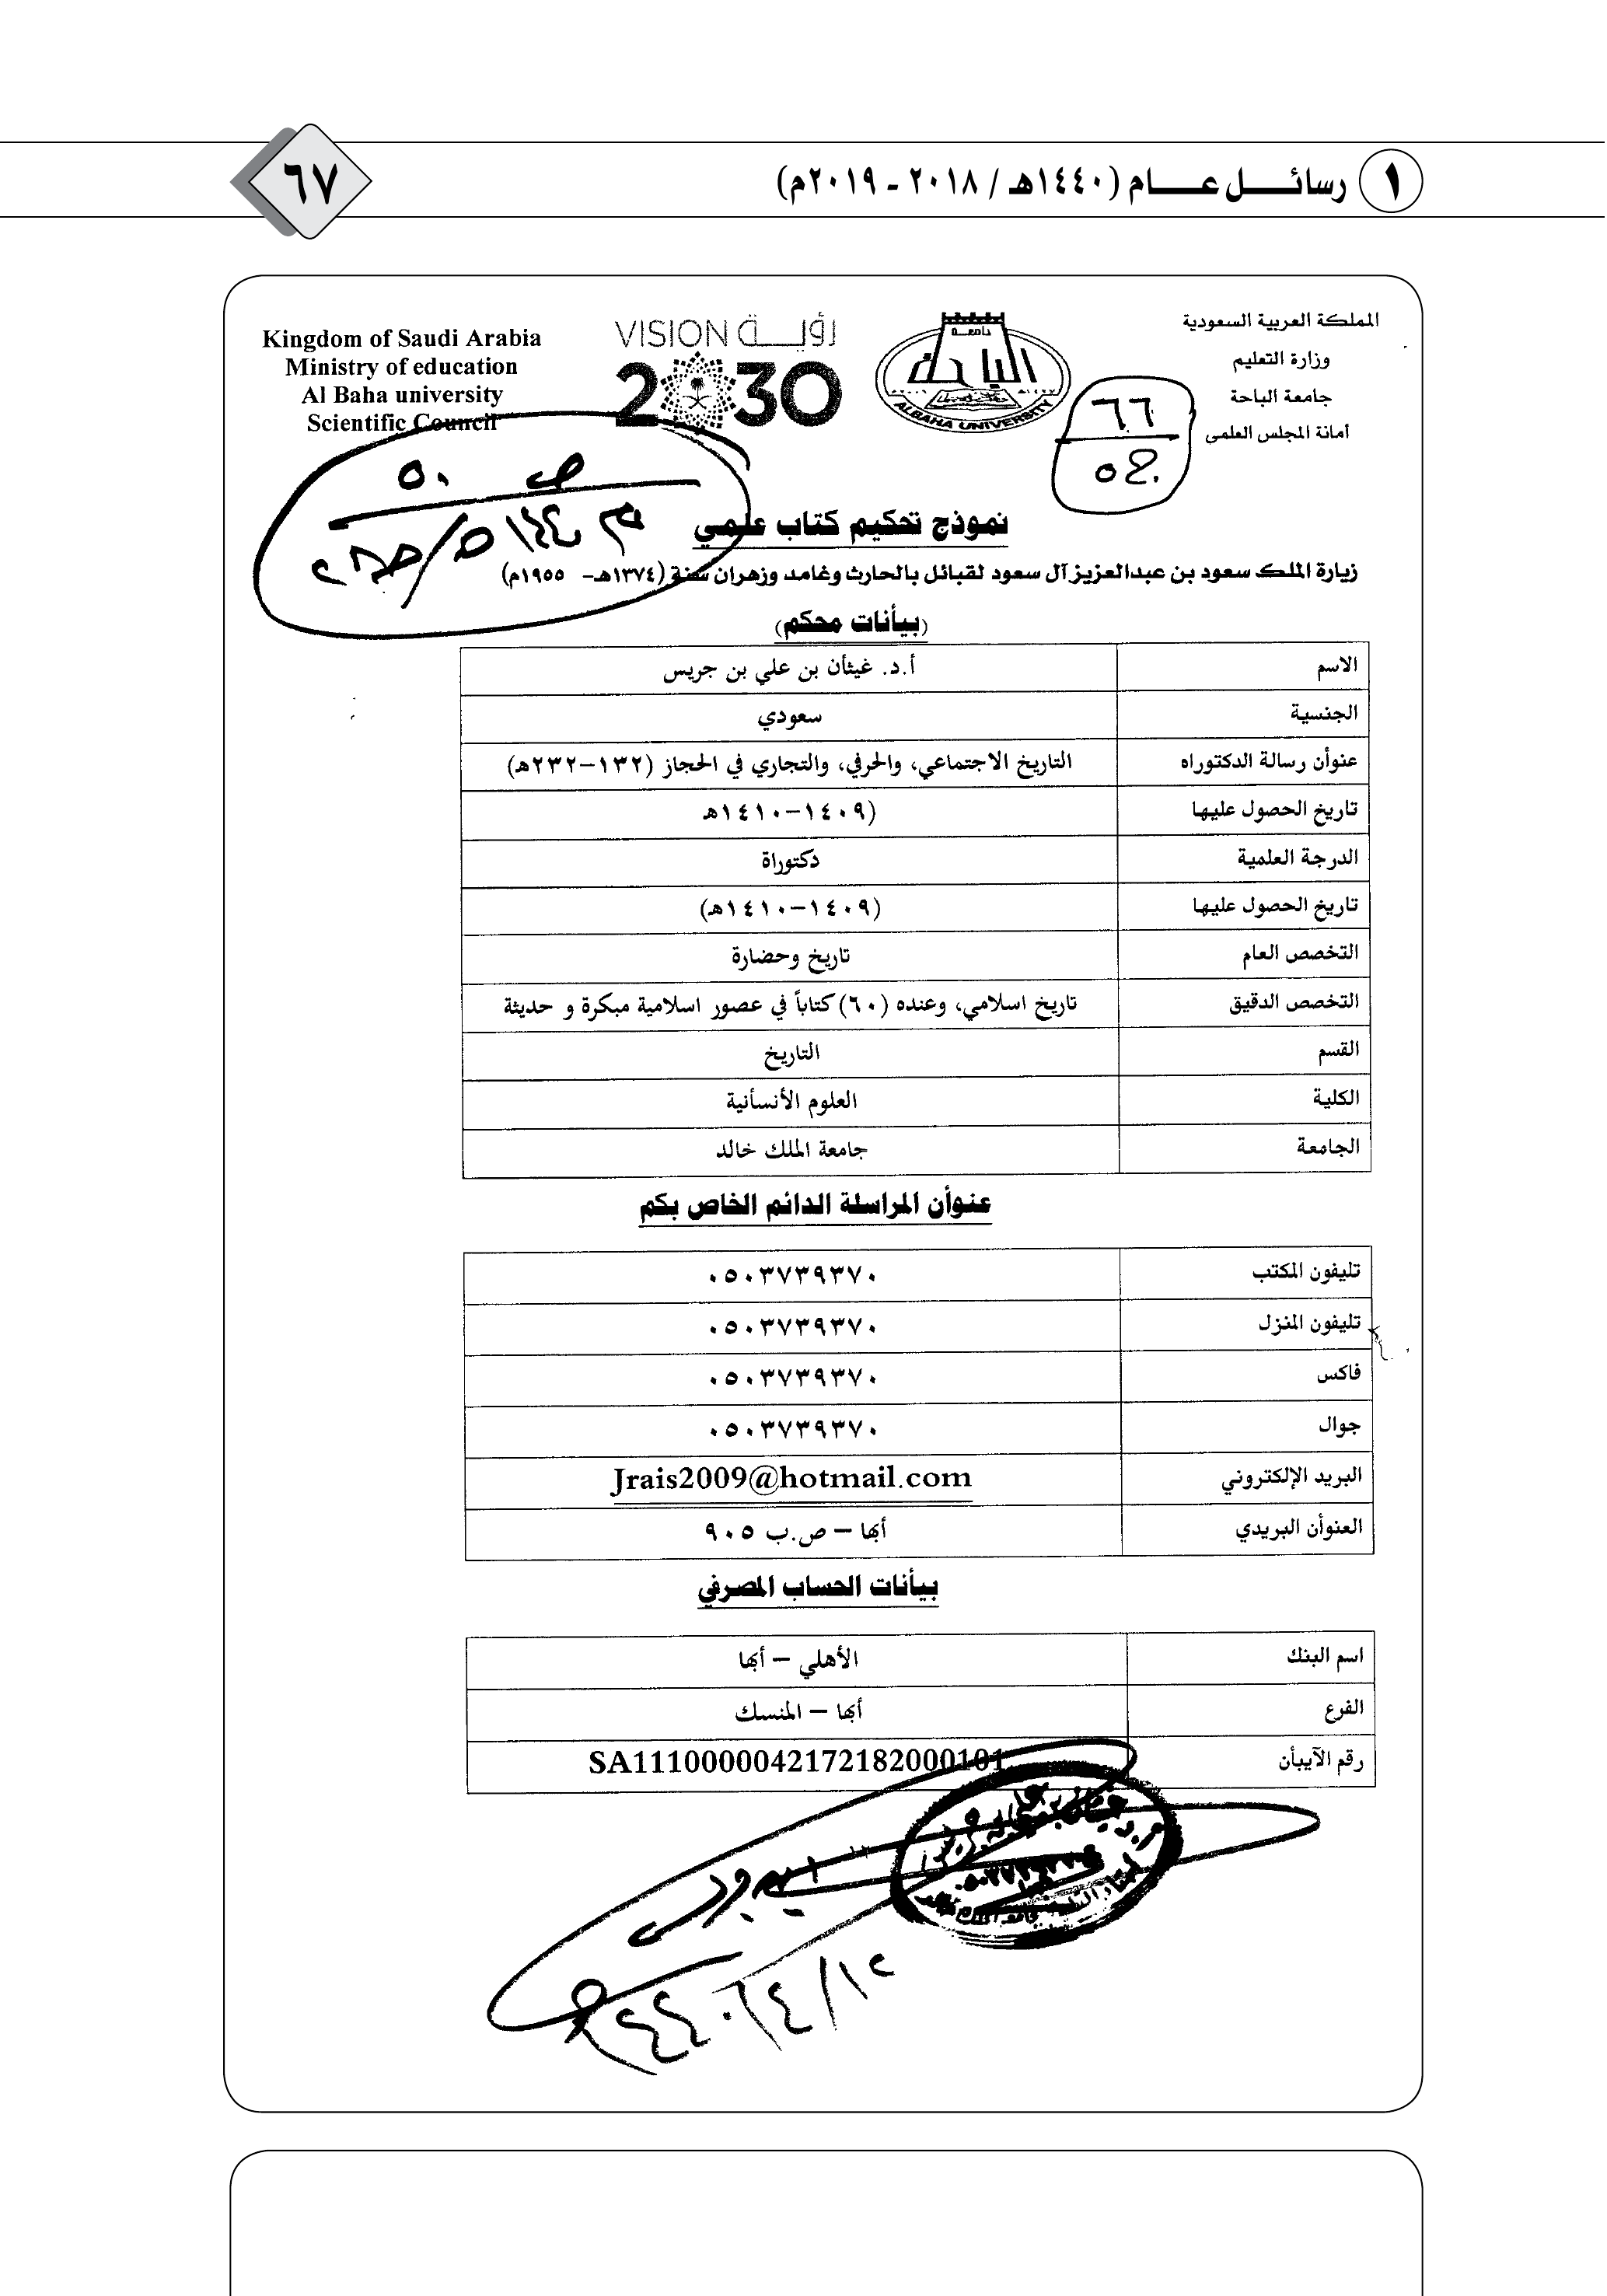 ١ رسائــــل عــــام (١٤٤٠هـ / ٢٠١٨ - ٢٠١٩م)
٦٧
المملكة العربية السعودية
وزارة التعليم
جامعة الباحة
أمانة المجلس العلمى
جامعة
الباحة
ALBAHA UNIVERSITY
VISION رؤيــة
2030
Kingdom of Saudi Arabia
Ministry of education
Al Baha university
Scientific Council
٦٦
ص ٥٠
نموذج تحكيم كتاب علمي
زيارة الملك سعود بن عبدالعزيز آل سعود لقبائل بالحارث وغامد وزهران سنة (١٣٧٤هـ- ١٩٥٥م)
(بيأنات محكم)
الاسم أ.د. غيثأن بن علي بن جريس
الجنسية سعودي
عنوأن رسالة الدكتوراه التاريخ الاجتماعي، والحرفي، والتجاري في الحجاز (١٣٢–٢٣٢هـ)
تاريخ الحصول عليها (١٤٠٩–١٤١٠هـ
الدرجة العلمية دكتوراة
تاريخ الحصول عليها (١٤٠٩–١٤١٠هـ)
التخصص العام تاريخ وحضارة
التخصص الدقيق تاريخ اسلامي، وعنده (٦٠) كتاباً في عصور اسلامية مبكرة و حديثة
القسم التاريخ
الكلية العلوم الأنسأنية
الجامعة جامعة الملك خالد
عنوأن المراسلة الدائم الخاص بكم
تليفون المكتب ٠٥٠٣٧٣٩٣٧٠
تليفون المنزل ٠٥٠٣٧٣٩٣٧٠
فاكس ٠٥٠٣٧٣٩٣٧٠
جوال ٠٥٠٣٧٣٩٣٧٠
البريد الإلكتروني Jrais2009@hotmail.com
العنوأن البريدي أبها – ص.ب ٩٠٥
بيأنات الحساب المصرفي
اسم البنك الأهلي – أبها
الفرع أبها – المنسك
رقم الآيبأن SA1110000042172182000101